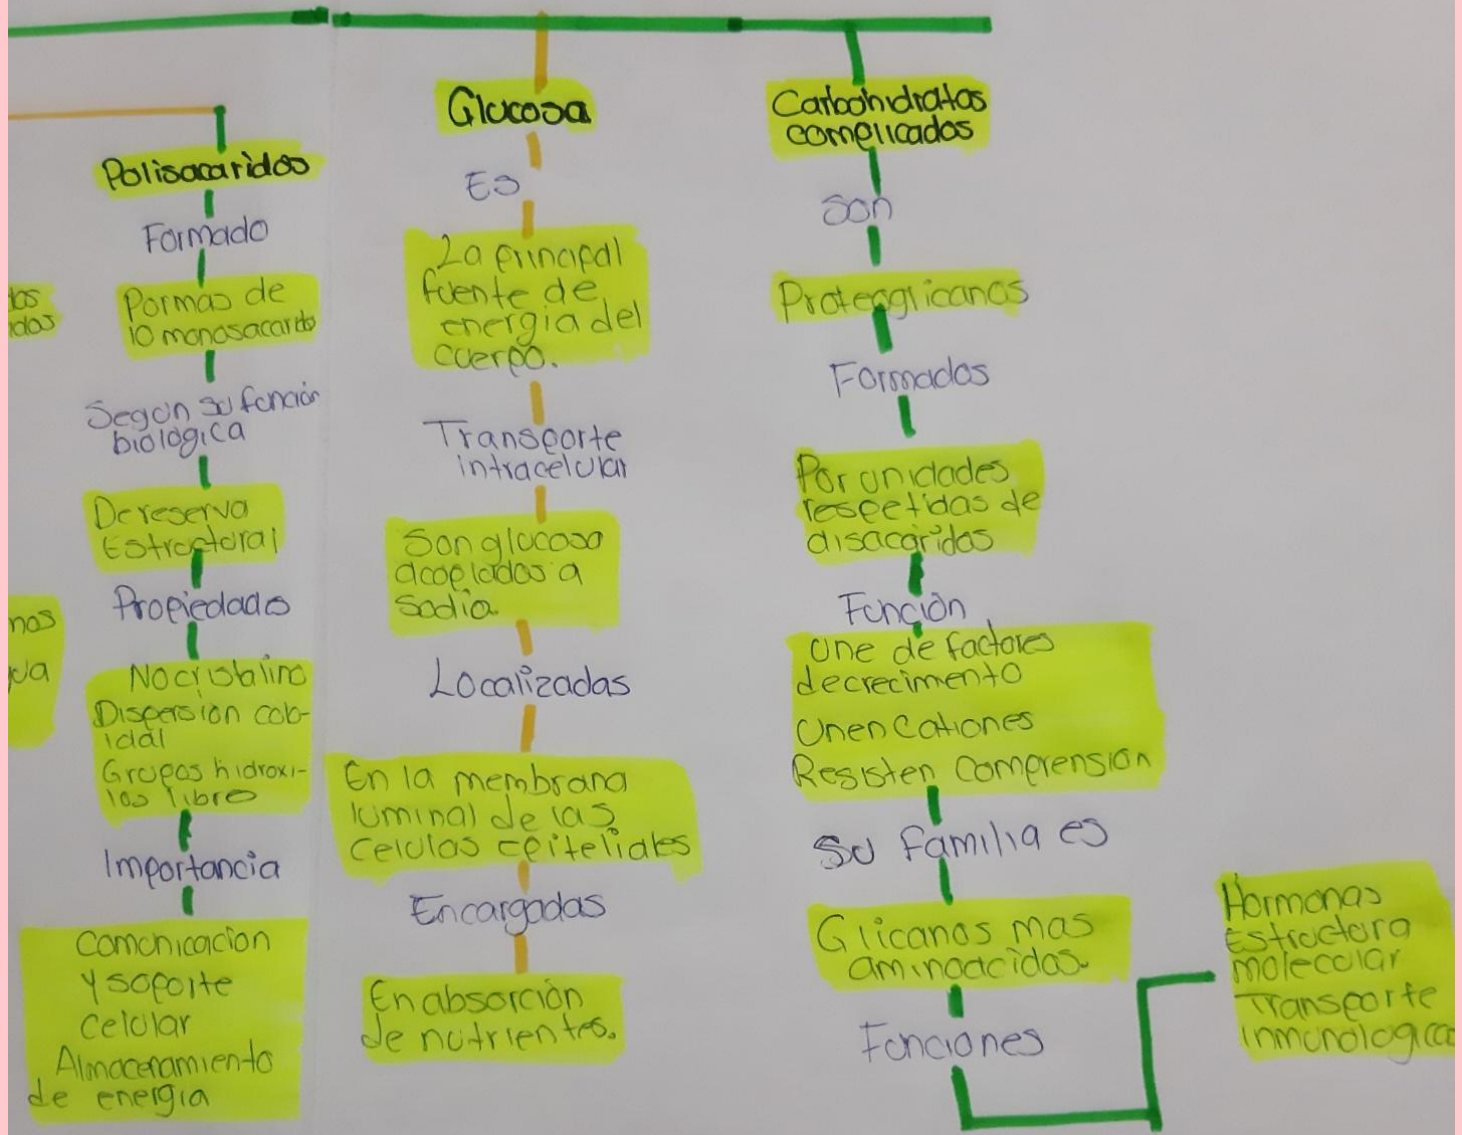 Polisacaridos
Formado
Por mas de
10 monosacarido
Segun su función
biologica
De reserva
Estructural
Propiedades
No cristalino
Dispersion colo-
idal
Grupos hidroxi-
los libre
Importancia
Comunicacion
y soporte
celular
Almacenamiento
de energia
Glucosa
Es
La principal
fuente de
energia del
cuerpo.
Transporte
intracelular
Son glucosa
acoplados a
Sodio.
Localizadas
En la membrana
luminal de las
celulas epiteliales
Encargadas
En absorción
de nutrientes.
Carbohidratos
complicados
Son
Proteoglicanos
Formados
Por unidades
respetidas de
disacaridos
Función
Une de factores
de crecimento
Unen Cationes
Resisten Comprension
Su familia es
Glicanos mas
aminoacidos.
Funciones
Hormonas
Estructura
molecular
Transporte
inmunologica